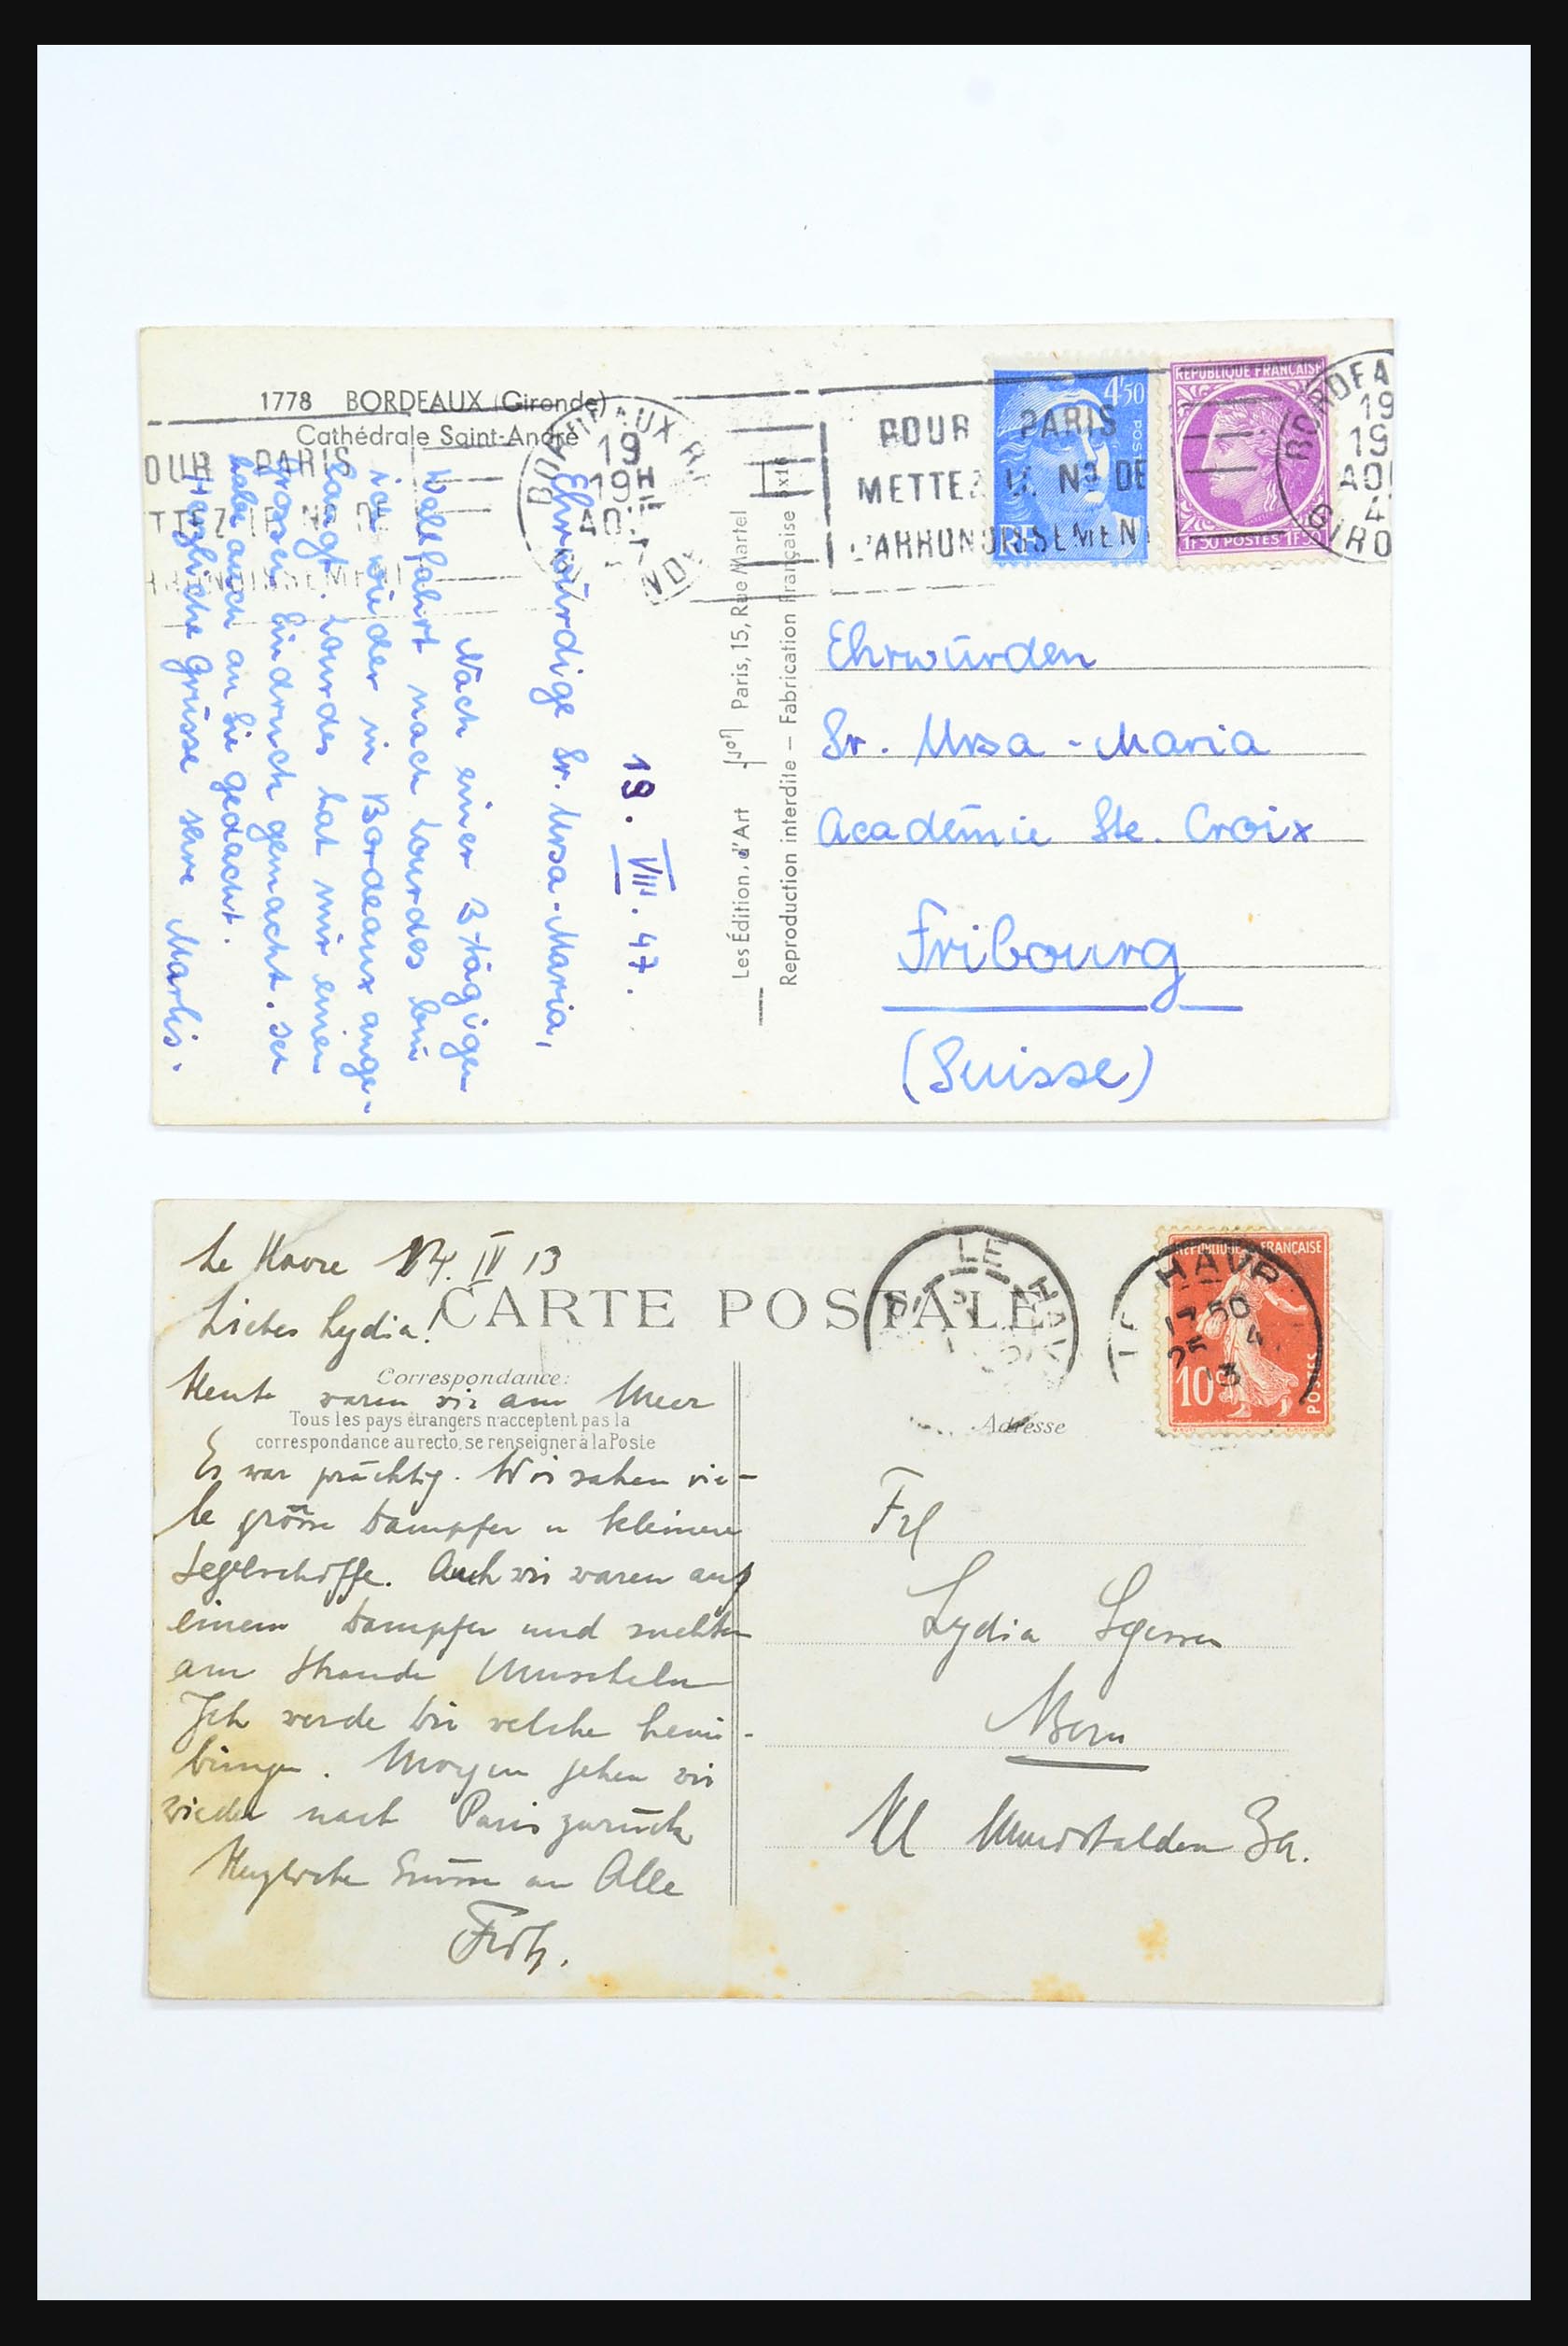 1778 BORDEAUX (Gironde)
Cathédrale Saint-André
OUR PARIS
BORDEAUX
19
19H
AOU
POUR PARIS
METTEZ LE No DE
L'ARRONDISSEMEN
4f50
RÉPUBLIQUE FRANÇAISE
1F50 POSTES 1F50
BORDEA
19
19
AOU
4
GIRO
19. VIII. 47.
Ehrwürdige Sr. Ursa-Maria,
Nach einer 3 tägigen
Wallfahrt nach Lourdes bin
ich wieder in Bordeaux ange-
langt. Lourdes hat mir einen
grossen Eindruck gemacht.
habe auch an Sie gedacht.
Herzliche Grüsse Marlis.
Les Édition, d'Art Yvon Paris, 15, Rue Martel
Reproduction interdite — Fabrication Française
Ehrwürden
Sr. Ursa-Maria
Académie Ste. Croix
Fribourg
(Suisse)
Le Havre 24. IV 13
Liebes Lydia!
CARTE POSTALE
LE HAV
LE HAVR
17 50
25 4
13
RÉPUBLIQUE FRANÇAISE
10c
POSTES
Correspondance:
Heute waren wir am Meer
Tous les pays étrangers n'acceptent pas la
correspondance au recto, se renseigner à la Poste
Adresse
Es war prächtig. Wir sahen vie-
le grosse Dampfer u kleinere
Segelschiffe. Auch wir waren auf
einem Dampfer und suchten
am Strande Muscheln
Ich werde Dir welche heim-
bringen. Morgen gehen wir
wieder nach Paris zurück
Herzliche Grüsse an Alle
Fritz.
Frl
Lydia
Bern
Kl Muristalden 3a.